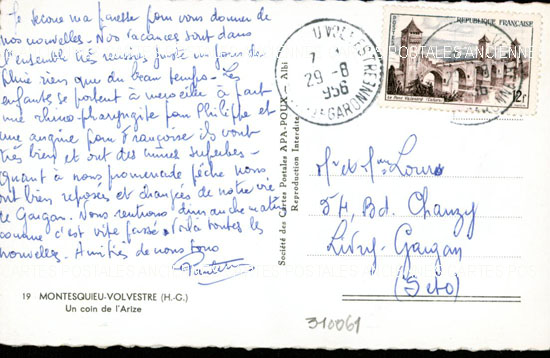 Je secoue ma paresse pour vous donner de
nos nouvelles. Nos vacances sont dans
l'ensemble très réussies juste un jour de
pluie rien que du beau temps. Les
enfants se portent à merveille à part
une rhino-pharyngite pour Philippe et
une angine pour Françoise ils vont
très bien et ont des mines superbes.
Quant à nous promenade pêche nous
ont bien reposés et changés de notre vie
de Gargan. Nous rentrons dimanche matin
comme c'est vite passé. Voilà toutes les
nouvelles. Amitiés de nous tous
19 MONTESQUIEU-VOLVESTRE (H.-G.)
Un coin de l'Arize
Société des Cartes Postales APA-POUX - Albi
Reproduction Interdite
29-8
1956
GARONNE
RÉPUBLIQUE FRANÇAISE
POSTES
Le Pont Valentré (Cahors)
12F
Mr et Mme Louis
54, Bd. Chanzy
Livry-Gargan
(S et O)
310061
CARTES POSTALES ANCIENNES